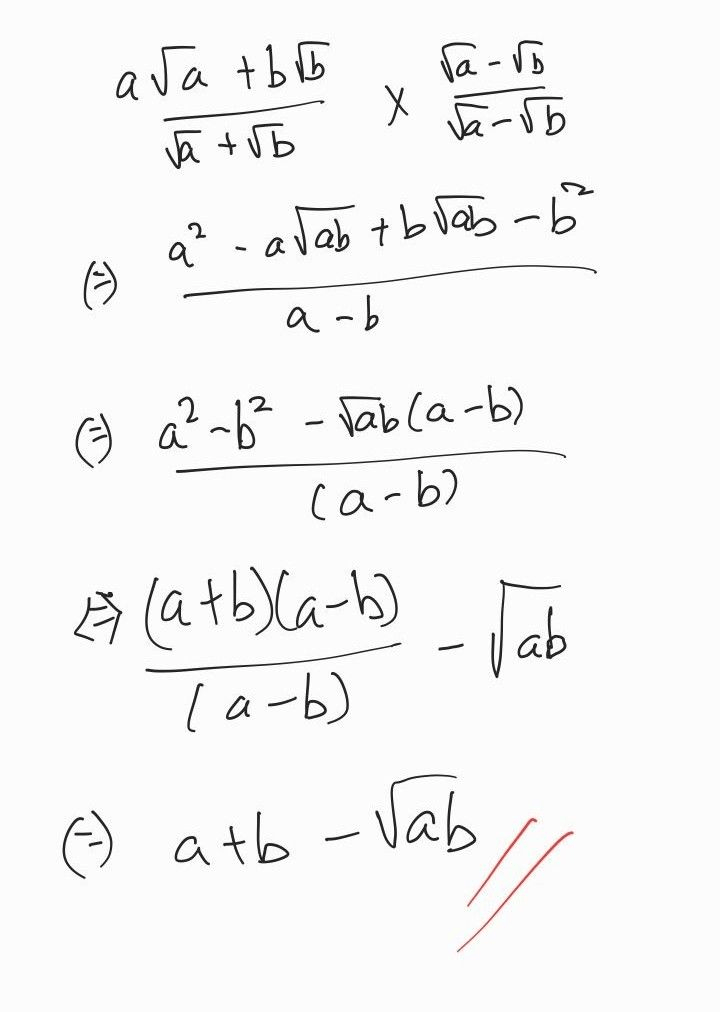 a√a + b√b / √a + √b × √a - √b / √a - √b
(=) a² - a√ab + b√ab - b² / a - b
(=) a² - b² - √ab (a - b) / (a - b)
(=) (a + b)(a - b) / (a - b) - √ab
(=) a + b - √ab